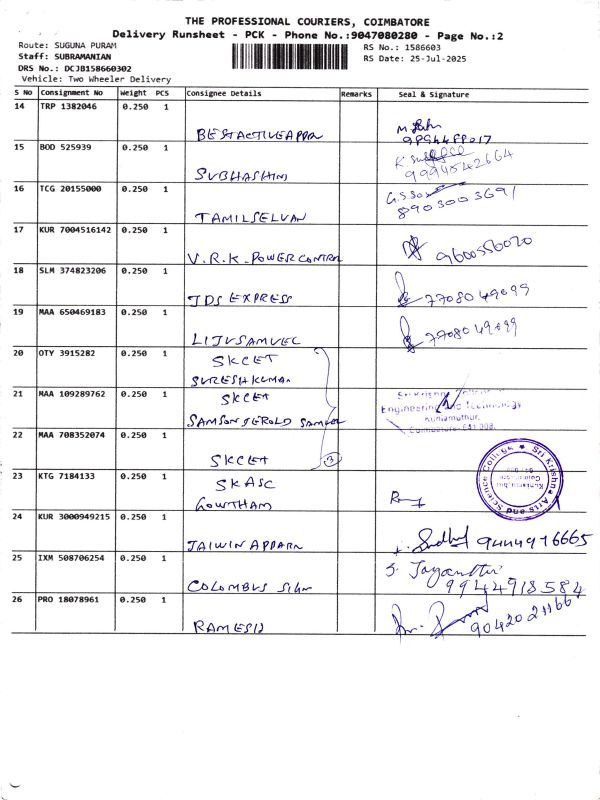 THE PROFESSIONAL COURIERS, COIMBATORE
Delivery Runsheet - PCK - Phone No.:9047080280 - Page No.:2
Route: SUGUNA PURAM
Staff: SUBRAMANIAN
DRS No.: DCJB158660302
Vehicle: Two Wheeler Delivery
RS No.: 1586603
RS Date: 25-Jul-2025
S No Consignment No Weight PCS Consignee Details Remarks Seal & Signature
14 TRP 1382046 0.250 1
BESTACTIVEAPPA
15 BOD 525939 0.250 1
SUBHASHINI
9994542664
16 TCG 20155000 0.250 1
TAMILSELVAN
8903003691
17 KUR 7004516142 0.250 1
V.R.K. POWERCONTROL
9600550020
18 SLM 374823206 0.250 1
JDS EXPRESS
7708049099
19 MAA 650469183 0.250 1
LIJUSAMUEL
7708049099
20 OTY 3915282 0.250 1
SKCET
SURESHKUMAR
21 MAA 109289762 0.250 1
SKCET
SAMSONJEROLD SAMUEL
Sri Krishna College of
Engineering and Technology
Kuniamuthur,
Coimbatore-641 008.
22 MAA 708352074 0.250 1
SKCET
3
23 KTG 7184133 0.250 1
SKASC
GOWTHAM
Sri Krishna Arts and Science College
24 KUR 3000949215 0.250 1
JAIWIN APPARN
9444976665
25 IXM 508706254 0.250 1
COLOMBUS SIGN
S. Jayanthi
9944918584
26 PRO 18078961 0.250 1
RAMESH
9042021166